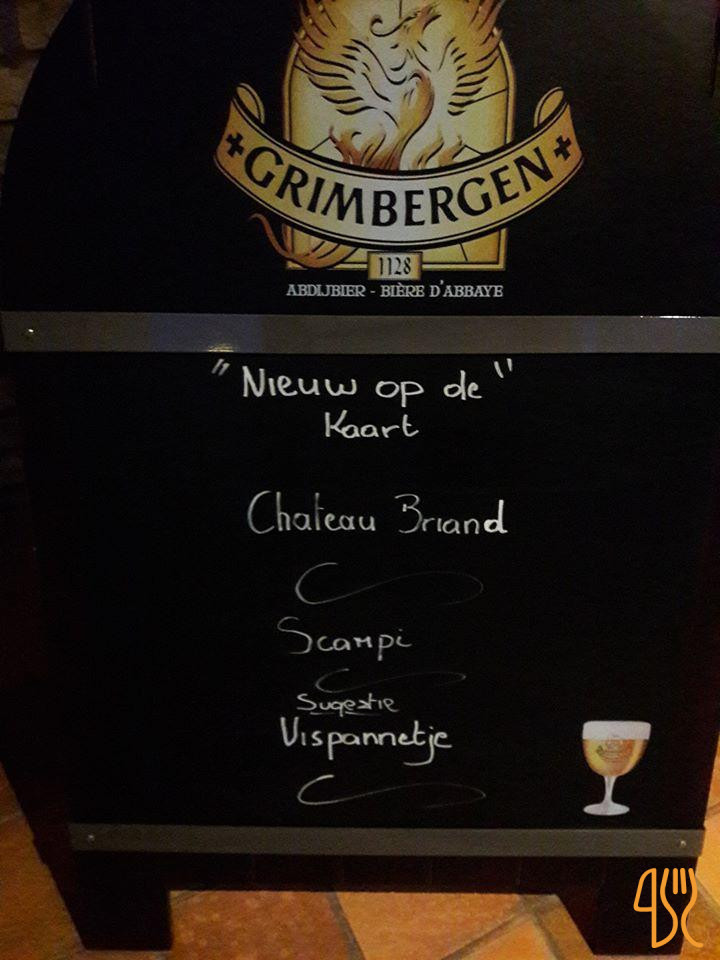 GRIMBERGEN
1128
ABDIJBIER - BIÈRE D'ABBAYE
"Nieuw op de"
Kaart
Chateau Briand
Scampi
Sugestie
Vispannetje